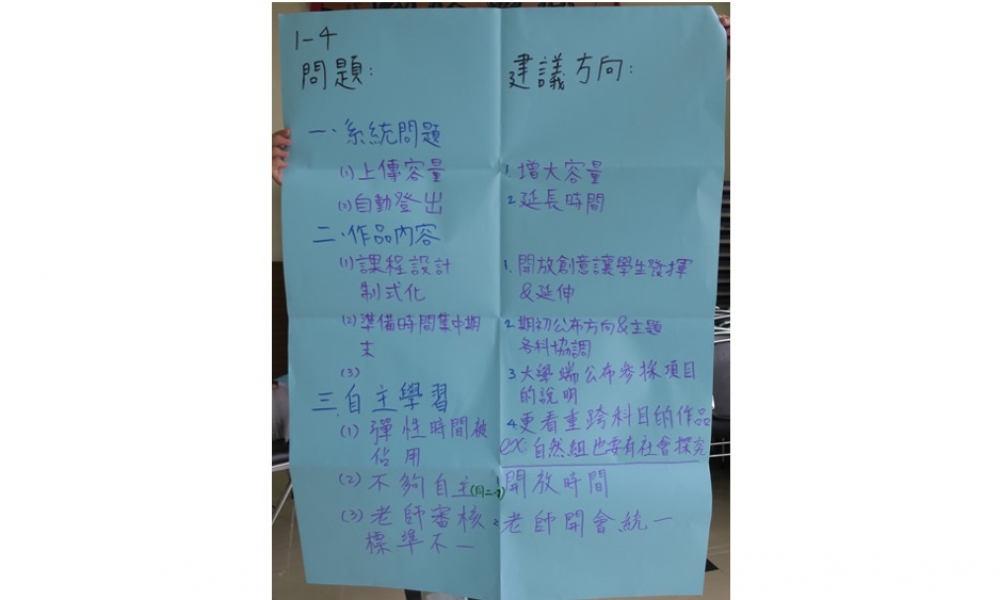 1-4
問題:
一、系統問題
(1)上傳容量
(2)自動登出
二、作品內容
(1)課程設計
制式化
(2)準備時間集中期
末
(3)
三、自主學習
(1)彈性時間被
佔用
(2)不夠自主
(3)老師審核
標準不一
建議方向:
1.增大容量
2.延長時間
1.開放創意讓學生發揮
&延伸
2.期初公布方向&主題
各科協調
3.大學端公布參採項目
的說明
4.更看重跨科目的作品
ex:自然組也要有社會探究
開放時間
2.老師開會統一